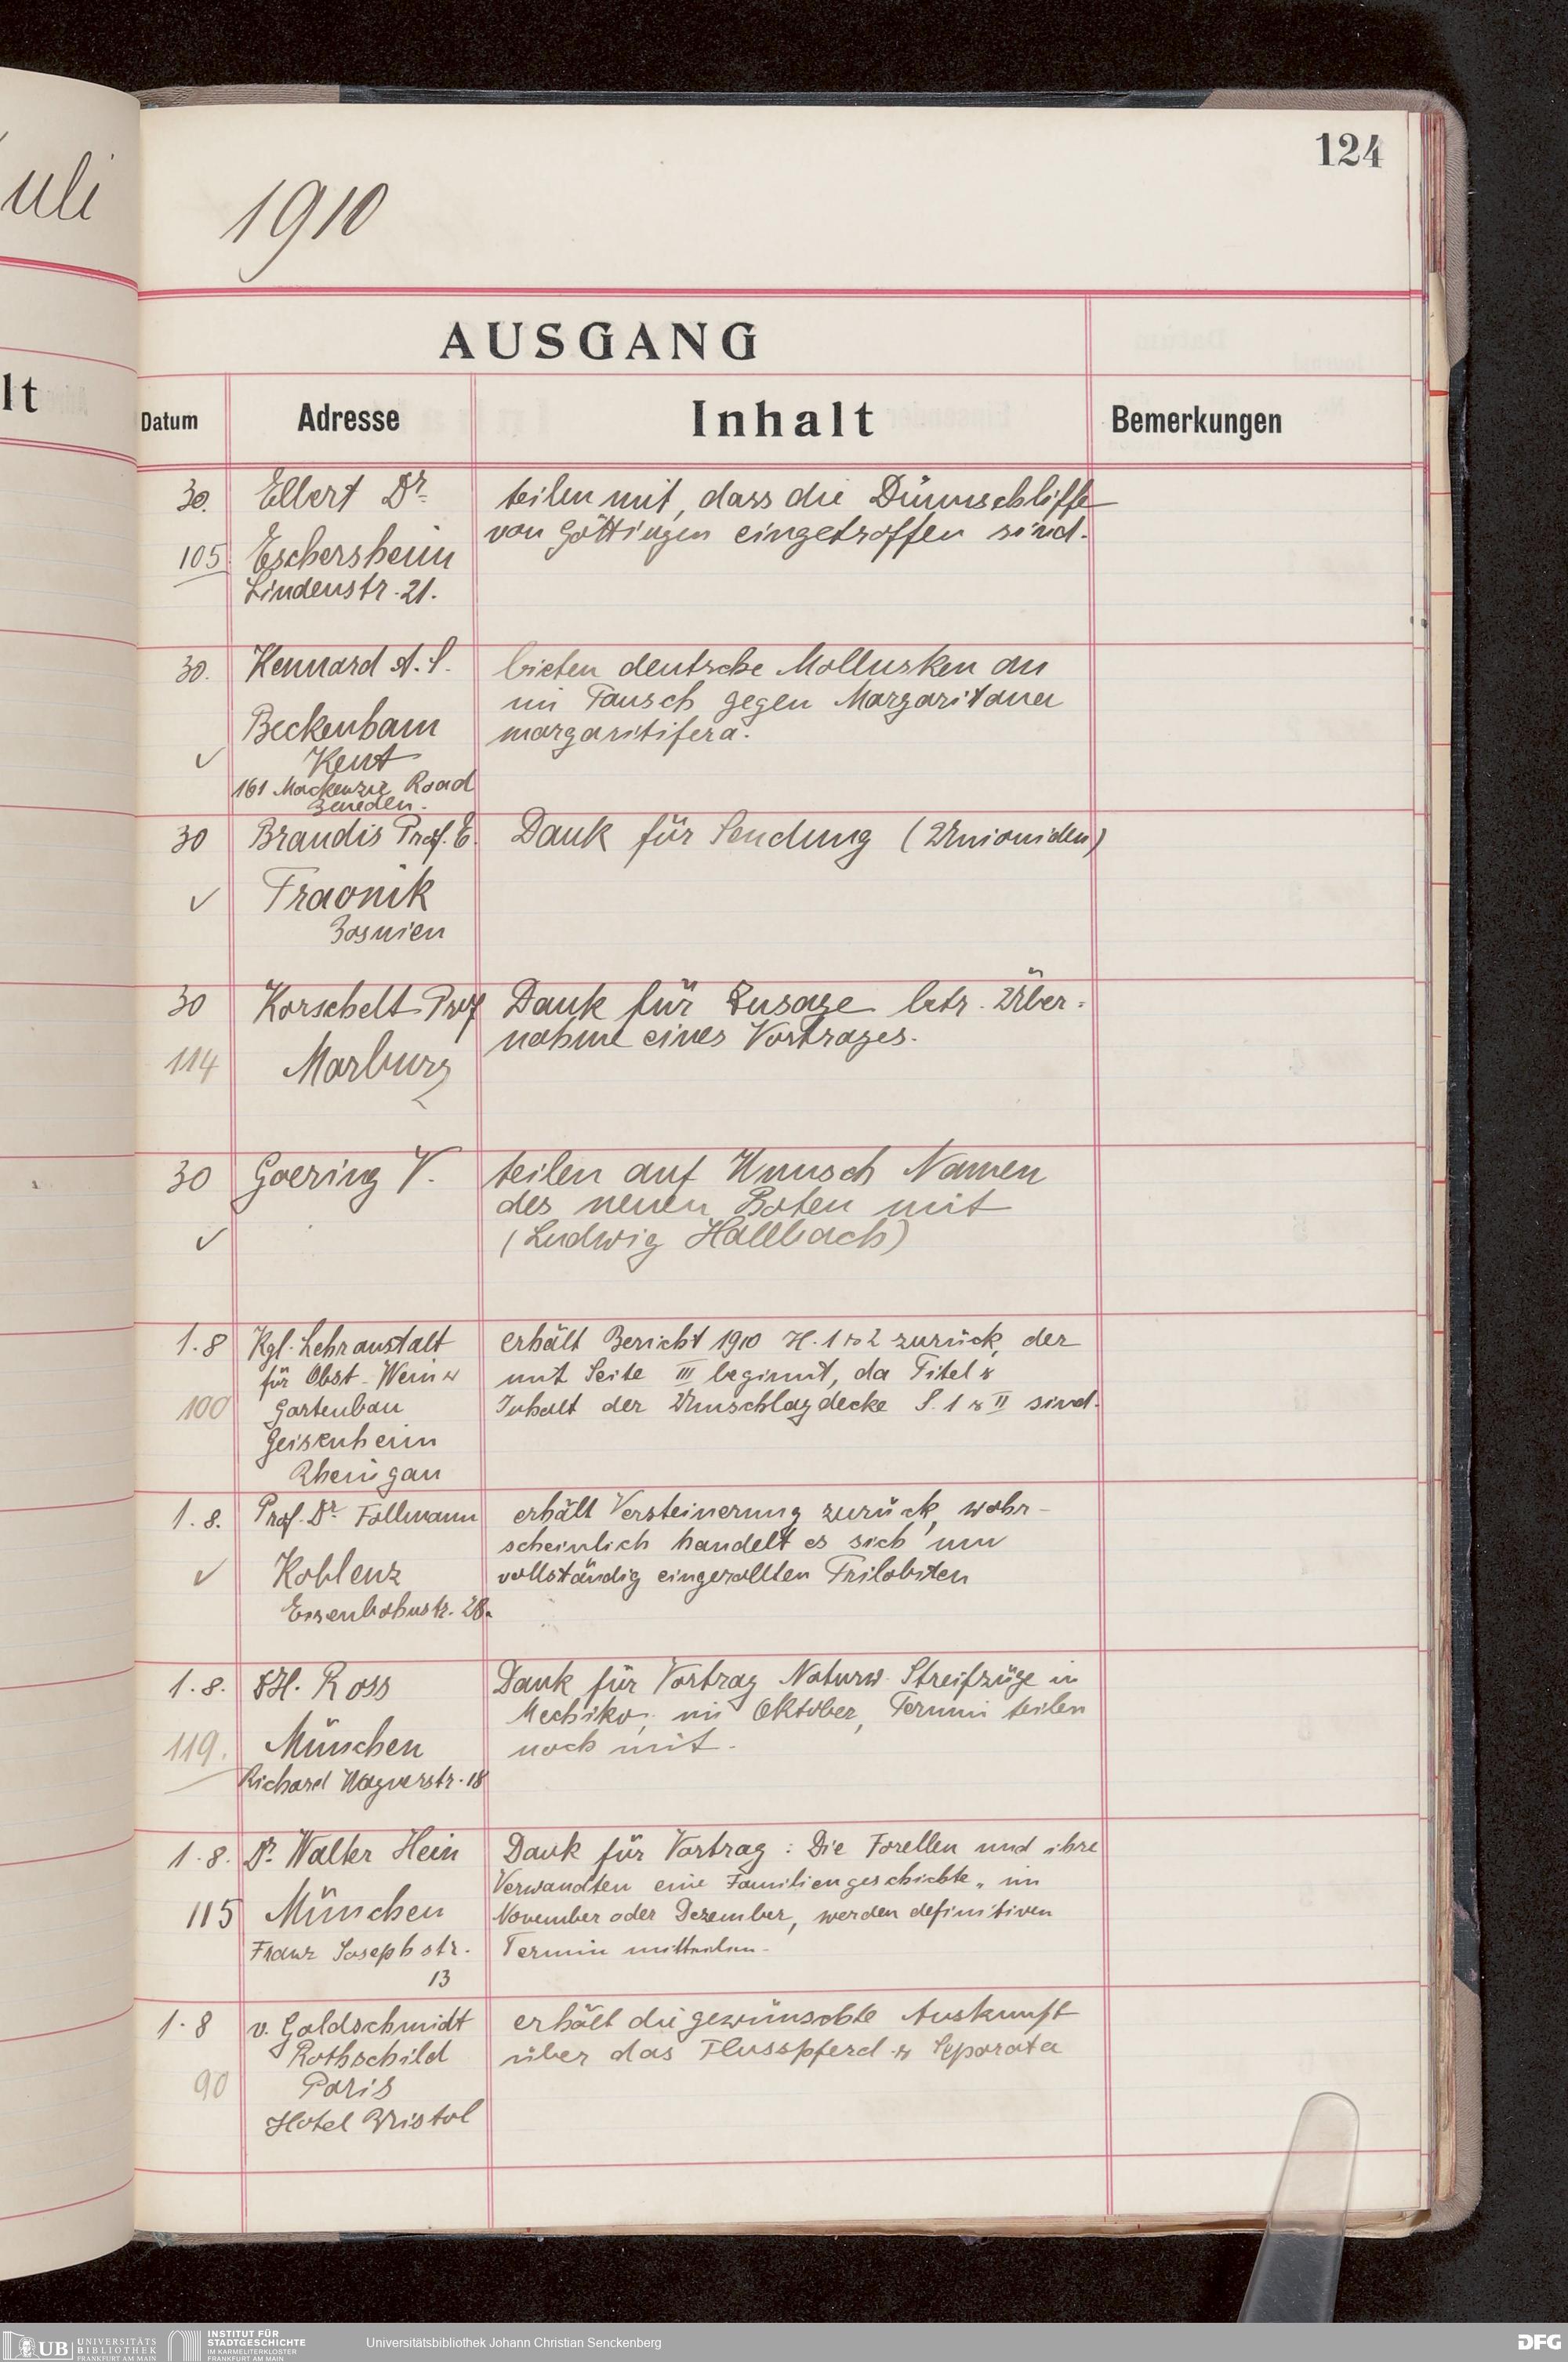 uli
124
1910
AUSGANG
lt
Datum Adresse Inhalt Bemerkungen
30. Ellert Dr. teilen mit, dass die Dünnschliffe
von Göttingen eingetroffen sind.
105 Eschersheim
Lindenstr. 21.
30. Kennard A. S. bieten deutsche Mollusken an
im Tausch gegen Margaritana
Beckenham margaritifera.
Kent
161 Mackenzie Road
30 Brandis Prof. E. Dank für Sendung (Unioniden)
Travnik
Bosnien
30 Korschelt Prof Dank für Zusage betr. Über-
nahme eines Vortrages.
114 Marburg
30 Goering V. teilen auf Wunsch Namen
des neuen Boten mit
(Ludwig Hallbach)
1.8 Kgl. Lehranstalt erhält Bericht 1910 H. 1 & 2 zurück, der
für Obst- Wein & mit Seite III beginnt, da Titel &
100 Gartenbau Inhalt der Umschlagdecke S. 1 & II sind.
Geisenheim
Rheingau
1.8. Prof. Dr. Follmann erhält Versteinerung zurück, wahr-
scheinlich handelt es sich um
Koblenz vollständig eingerollten Trilobiten
Eisenbahnstr. 28.
1.8. H. Ross Dank für Vortrag Naturw. Streifzüge in
Mechiko, im Oktober, Termin teilen
119. München noch mit.
Richard Wagnerstr. 18
1.8. Dr. Walter Hein Dank für Vortrag: Die Forellen und ihre
Verwandten eine Familiengeschichte„ im
115 München November oder Dezember, werden definitiven
Franz Josephstr. Termin mitteilen.
13
1.8 v. Goldschmidt erhält die gewünschte Auskunft
Rothschild über das Flusspferd & Separata
90 Paris
Hotel Bristol
UB UNIVERSITÄTS BIBLIOTHEK FRANKFURT AM MAIN
INSTITUT FÜR STADTGESCHICHTE IM KARMELITERKLOSTER FRANKFURT AM MAIN
Universitätsbibliothek Johann Christian Senckenberg
DFG